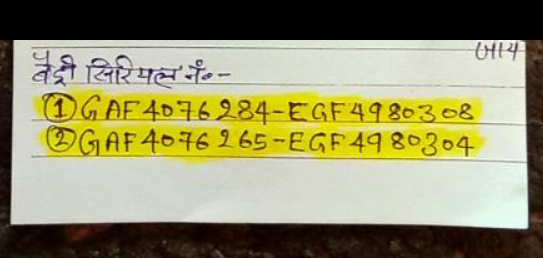 जाय
बैट्री सिरियल नं०-
① GAF4076284-EGF4980308
② GAF4076265-EGF4980304